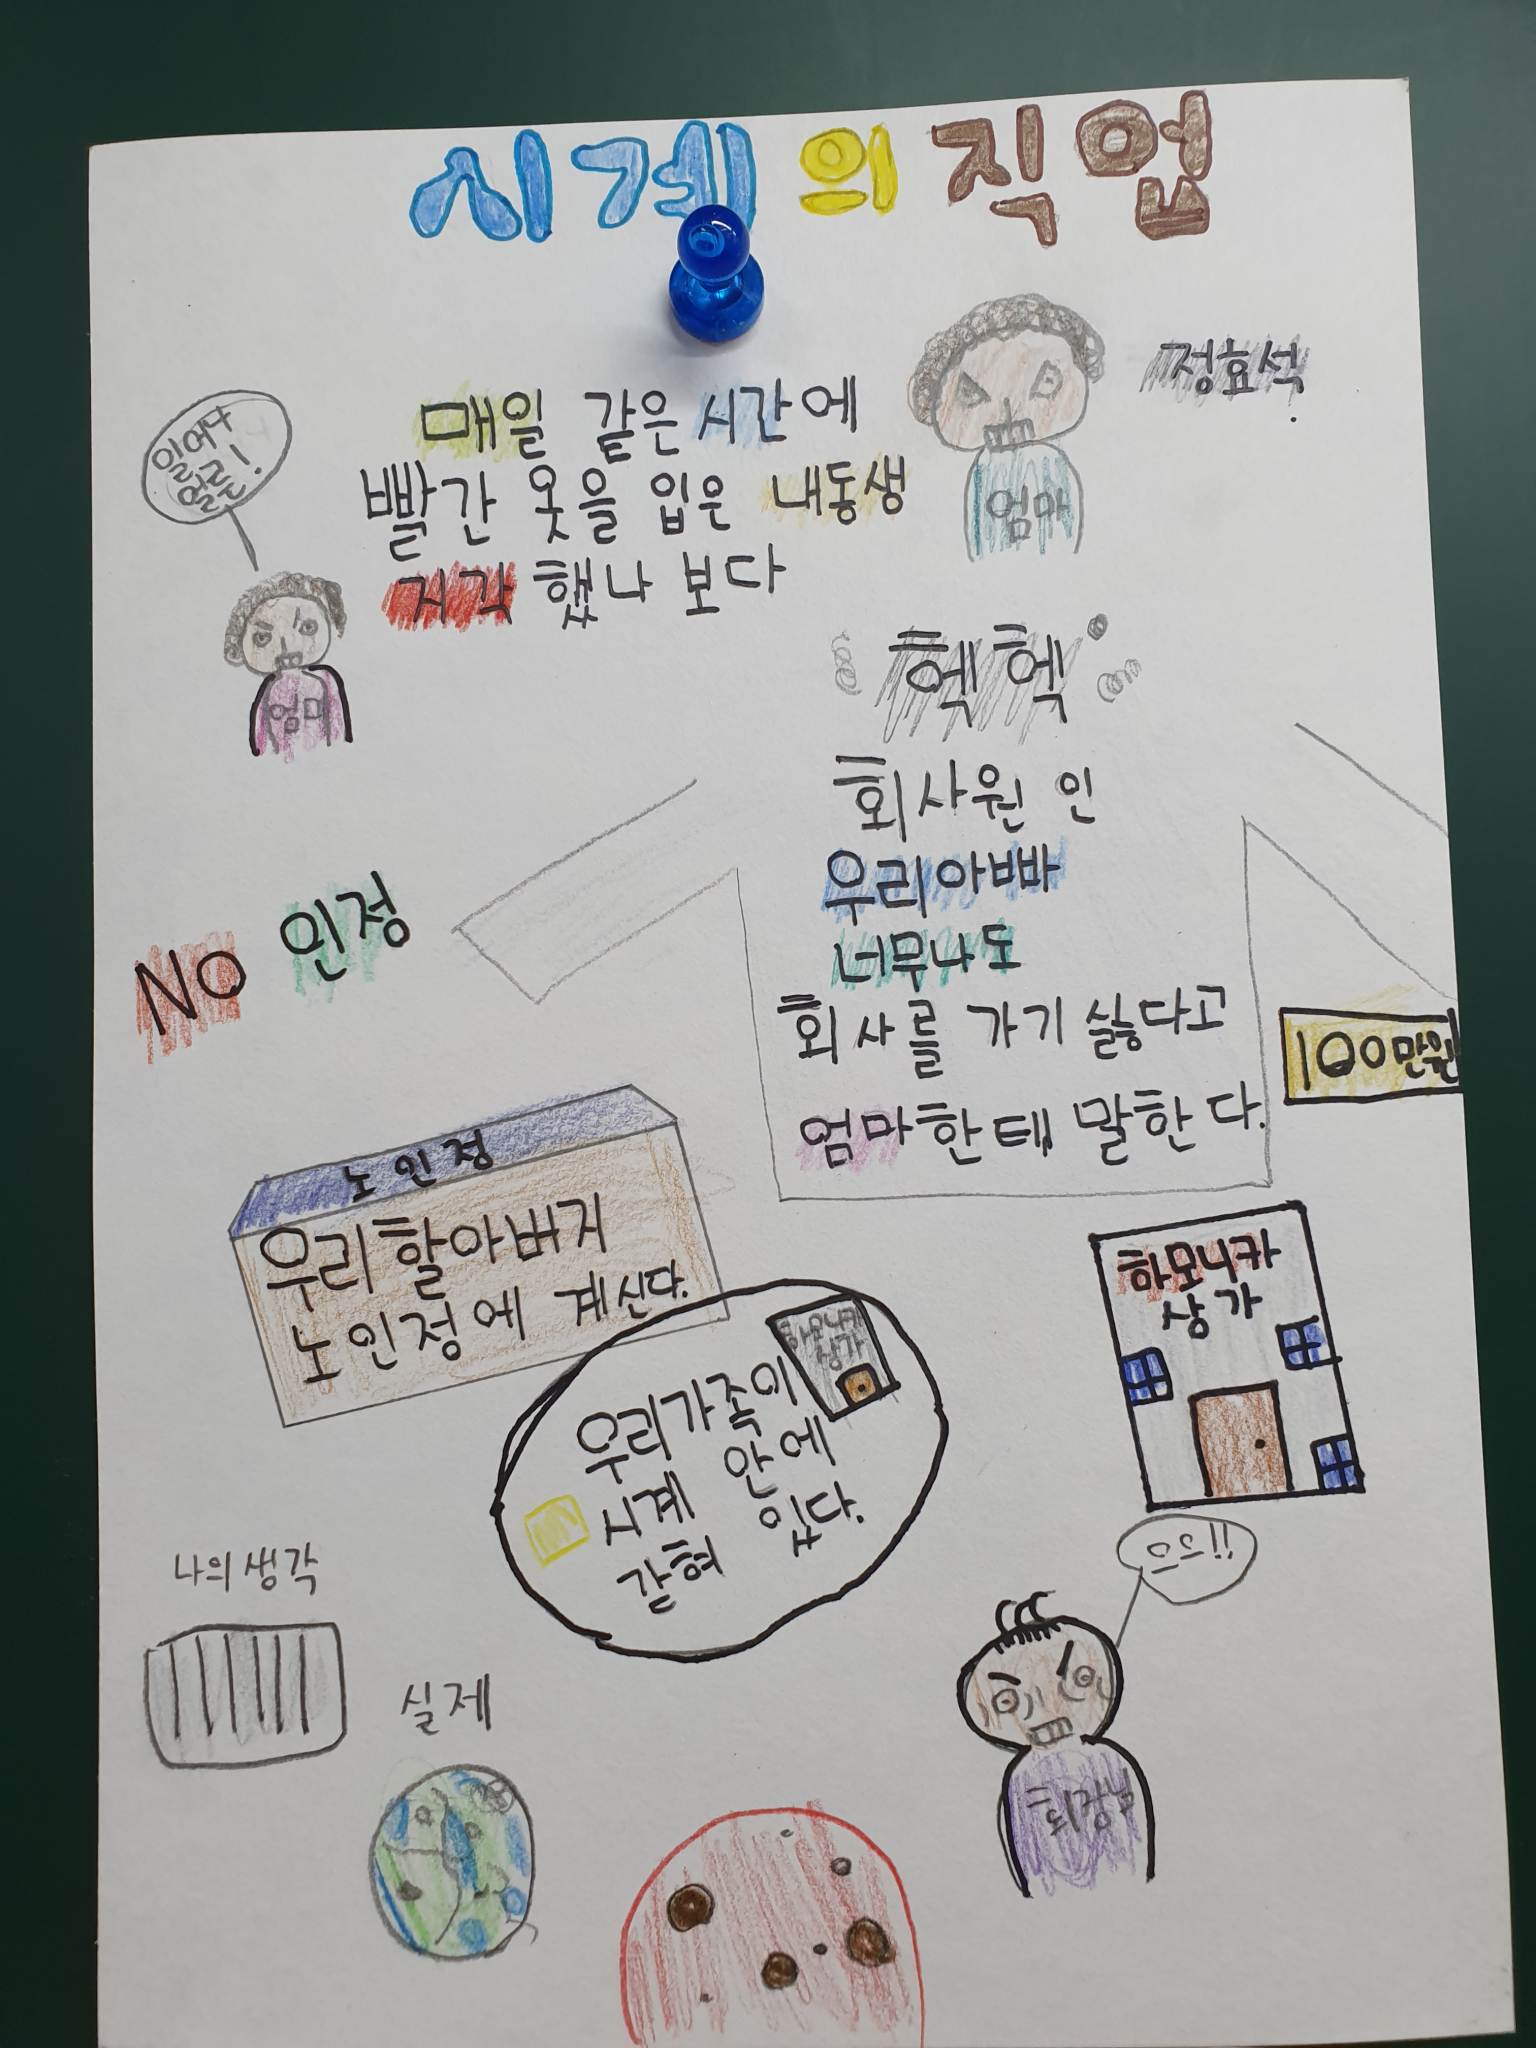 시계의 직업
정효석
일어나
얼른!
엄마
매일 같은 시간에
빨간 옷을 입은 내동생
지각 했나 보다
엄마
헥헥
회사원 인
우리아빠
너무나도
회사를 가기 싫다고
엄마한테 말한다.
100만원
NO 인정
노인정
우리할아버지
노인정에 계신다.
하모니카
상가
우리가족이
시계 안에
갇혀 있다.
하모니카
상가
나의생각
실제
으으!!
회장님